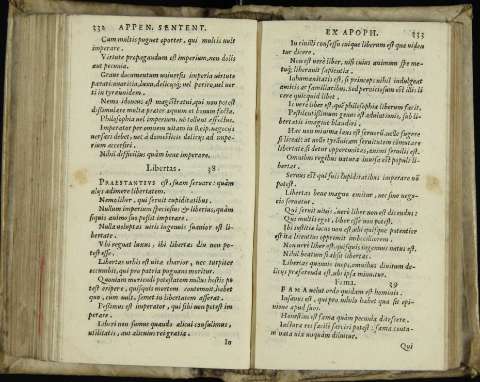 332 APPEN. SENTENT.
Cum multis pugnet oportet, qui multis vult
imperare.
Virtute propagandum est imperium, non dolis
aut pecunia.
Graue documentum universis imperia virtute
parari, auaritia, luxu, delicijs; vel perire, vel ver
ti in tyrannidem.
Nemo idoneus est magistratui, qui non potest
dissimulare multa præter æquum et bonum facta.
Philosophia vel imperium, vò tollent esticibus.
Imperator per omnem vitam in Reip. negocijs
versari debet, nec à domesticis delicijs ad impe-
rium accersiri.
Nihil difficilius quàm bene imperare.
Libertas. 38
PRAESTANTIVS est, suam seruare: quàm
alijs adimere libertatem.
Nemo liber, qui seruit cupiditatibus.
Nullum imperium speciosius & libertas, quàm
siquis animo suo possit imperare.
Nulla voluptas viris ingenuis suauior est li-
bertate.
Vbi regnat luxus, ibi libertas diu non po-
test esse.
Libertas urbis est vita charior, nec turpiter
occumbit, qui pro patria pugnans moritur.
Quoniam moriendi potestatem nullus hostis po
test eripere, quisquis mortem contemnit, habet
quo, cum vult, semet in libertatem asserat.
Pessimus est imperator, qui sibi non potest im
perare.
Liberi non sumus quando alicui consulimus,
utilitatis, aut alicuius rei gratia.
In
EX APOPH. 333
In ciuili consessu cuique liberum est quæ viden
tur dicere.
Non est verè liber, nisi cuius animum spe me-
tuq́; liberauit sapientia.
Inhumanitatis est, si princeps nihil indulgeat
amicis ac familiaribus. Sed perniciosum est illis li
cere quicquid libet.
Is verè liber est, quem philosophia liberum facit.
Pestilentissimum genus est adulationis, sub li-
bertatis imagine blandiri.
Hæc non minima laus est seruorum aulæ sugere
si liceat: at nolle turbidum seruitutem commutare
libertate si detur opportunitas, animi seruilis est.
Omnibus regibus natura inuisa est populi li-
bertas.
Seruus est qui suis cupiditatibus imperare nō
potest.
Libertas bene magno emitur, nec sine nego-
cio seruatur.
Qui seruit vitijs, verè liber non est dicendus:
Qui multis eget, liber esse non potest.
Ibi iustitia locus non est, ubi quisque potentior
est ita licentius opprimit imbecilliorem.
Non verè liber est, quisquis ingenuus natus est.
Nihil beatum si absit libertas.
Libertas quamuis inops, omnibus diuitum de-
licijs præferenda est, ubi ipsa minuitur.
Fama. 39
FAMA velut orbo quidam est hominis.
Insanus est, qui pro nihilo habet quæ sit opi-
nione apud suos.
Honestius est fama quàm pecunia ditescere.
Iactura rei facile sarciri potest: fama conta-
minata vix unquàm diluitur.
Qui